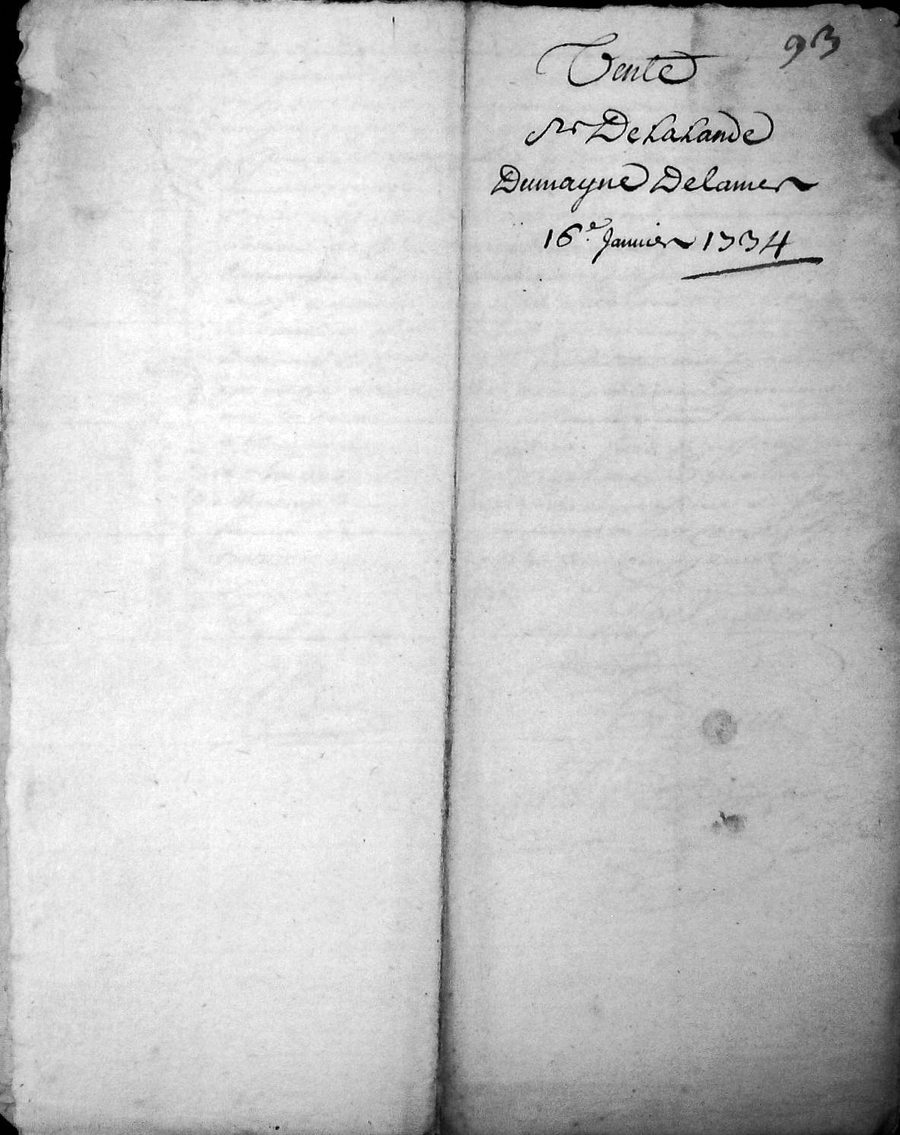 93
Vente
Sr DeLaLande
Dumayne Delamer
16e. Janvier 1734